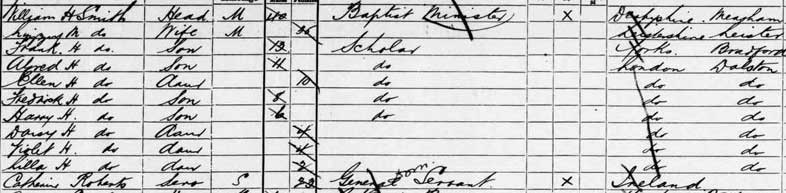 William H Smith Head M 40 Baptist Minister X Derbyshire Measham
M do Wife M Leicestershire Leicester
Frank H do. Son 12 Scholar Yorks. Bradford
Alfred H do Son 11 do London Dalston
Ellen H do Daur 10 do do do
Fredrick H do Son 8 do do do
Harry H. do Son 6 do do do
Daisy H do Daur 4 do do
Violet H. do daur 4 do do
Lilla H do daur 2 do do
Catherine Roberts Serv S 22 General Dom Servant X Ireland